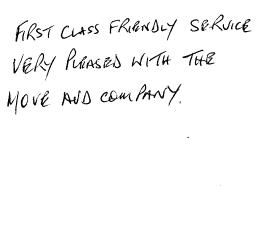 FIRST CLASS FRIENDLY SERVICE
VERY PLEASED WITH THE
MOVE AND COMPANY.